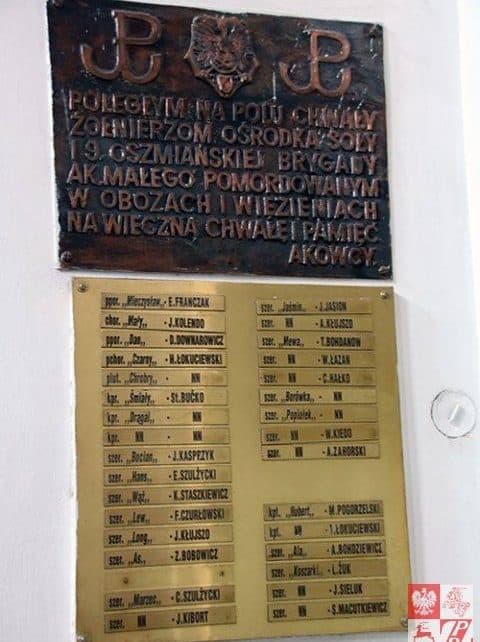 POLEGŁYM NA POLU CHWAŁY
ŻOŁNIERZOM OŚRODKA SOŁY
I 9. OSZMIAŃSKIEJ BRYGADY
AK. MAŁEGO POMORDOWANYM
W OBOZACH I WIĘZIENIACH
NA WIECZNĄ CHWAŁĘ I PAMIĘĆ
AKOWCY.
ppor. „Mieczysław„ - E. FRANCZAK
chor. „Mały„ - J. KOLENDO
ppor. „Dan„ - D. DOWNAROWICZ
pchor. „Czarny„ - H. ŁOKUCIEWSKI
plut. „Chrobry„ - NN
kpr. „Śmiały„ - St. BUĆKO
kpr. „Dragal„ - NN
kpr. NN - NN
szer. „Bocian„ - J. KASPRZYK
szer. „Hans„ - E. SZULŻYCKI
szer. „Wąż„ - K. STASZKIEWICZ
szer. „Lew„ - F. CZURŁOWSKI
szer. „Long„ - J. KŁUJSZO
szer. „As„ - Z. BOBOWICZ
szer. „Marzec„ - C. SZULŻYCKI
szer. NN - J. KIBORT
szer. „Jaśmin„ - J. JASION
szer. NN - A. KŁUJSZO
szer. „Mewa„ - T. BOHDANOW
szer. NN - W. ŁAZAN
szer. NN - C. HAŁKO
szer. „Borówka„ - NN
szer. „Popiołek„ - NN
szer. NN - W. KIEDO
szer. NN - A. ZAHORSKI
kpt. „Hubert„ - M. POGORZELSKI
kpt. NN - T. ŁOKUCIEWSKI
szer. „Ala„ - A. BOHDZIEWICZ
szer. „Koszarki„ - L. ŻUK
szer. NN - J. SIELUK
szer. NN - S. MACUTKIEWICZ